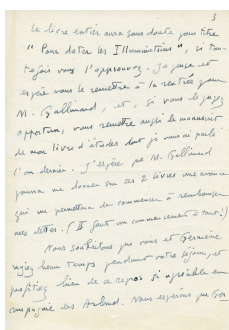 3
Le livre entier aura sans doute pour titre
"Pour dater les Illuminations", si tou-
tefois vous l'approuvez. Je pense et
espère vous le remettre à la rentrée pour
M. Gallimard, et, si vous le jugez
opportun, vous remettre aussi le manuscrit
de mon livre d'études dont je vous ai parlé
l'an dernier. J'espère que M. Gallimard
pourra me donner sur ces 2 livres une avance
qui me permettra de commencer à rembourser
mes dettes. (Il faut un commencement à tout!)
Nous souhaitons que vous et Germaine
ayez beau temps pendant votre séjour, et
profitiez bien de ce repos si agréable en
compagnie des Arland. Nous espérons que Ger